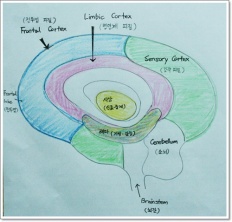 (전두엽 피질)
Frontal Cortex
Limbic Cortex
(변연계 피질)
Sensory Cortex
(감각 피질)
Frontal
lobe
(전두엽)
시상
해마
Cerebellum
(소뇌)
Brainstem
(뇌간)